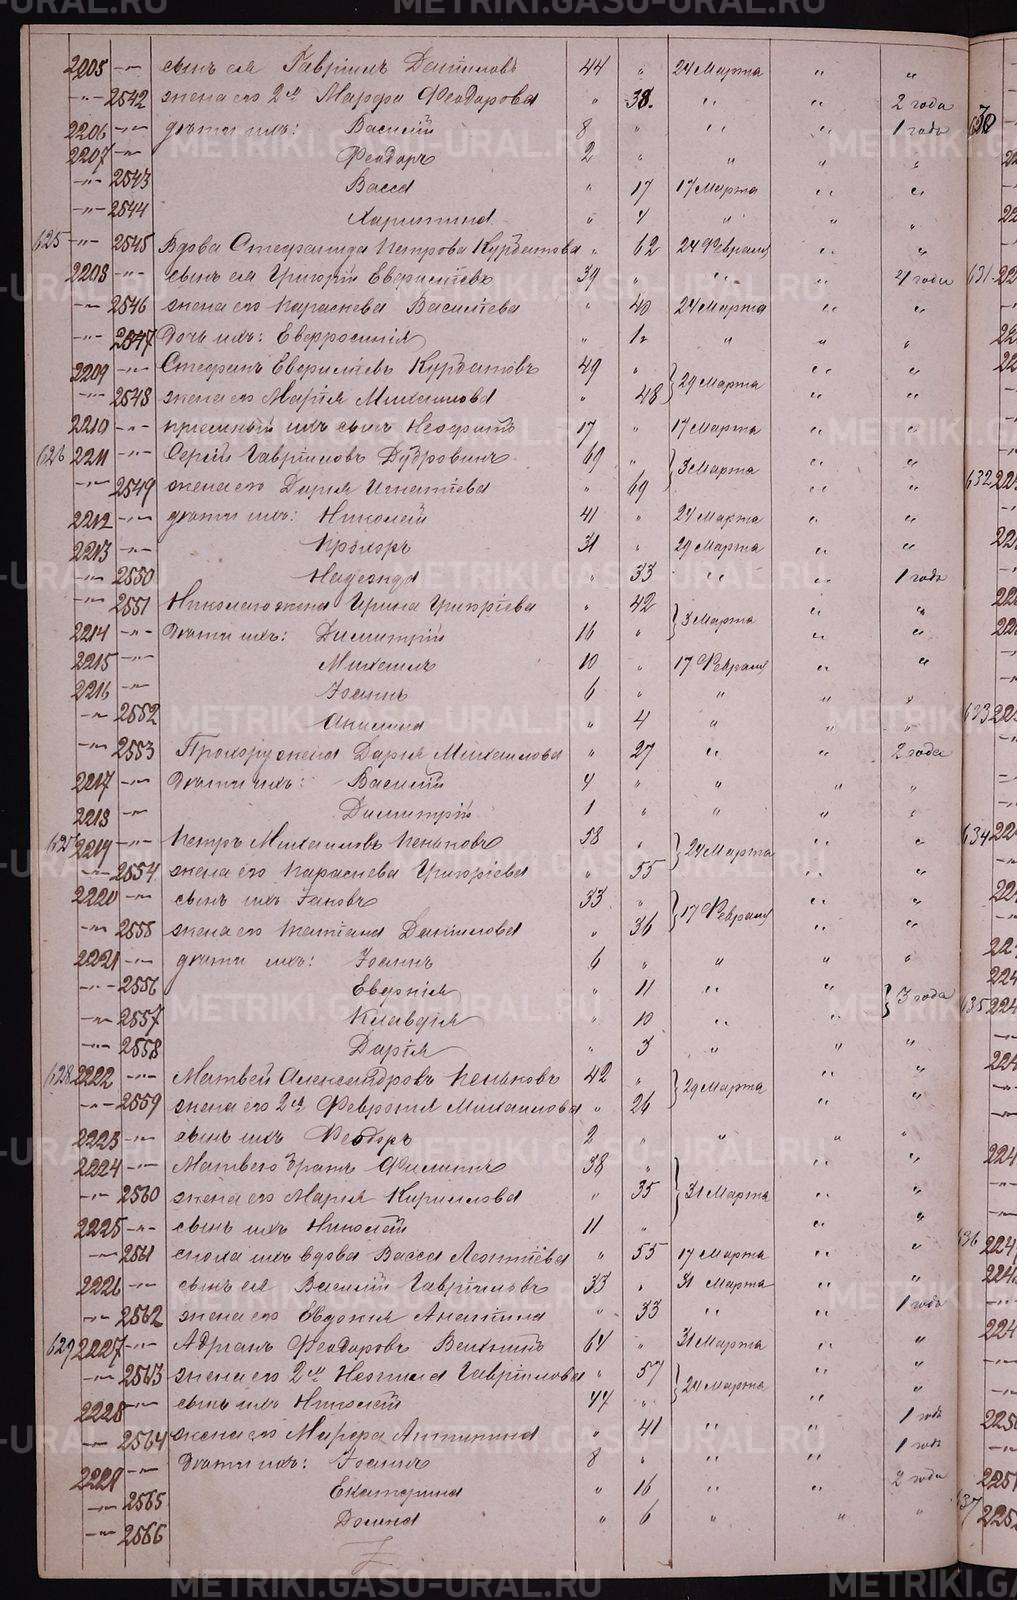 METRIKI.GASO-URAL.RU METRIKI.GASO-URAL.RU
2205 -"- сынъ ея Гавріилъ Даниловъ 44 " 24 Марта " "
-"- 2542 жена его 2я Марфа Феодорова " 38. " " 2 года
2206 -"- дѣти ихъ: Василій 8 " " " 1 годъ
2207 -"- Феодоръ 2 " " " "
-"- 2543 Васса " 17 17 Марта " "
-"- 2544 Харитина " 4 " " "
625 -"- 2545 Вдова Стефанида Петрова Курбатова " 62 24 Февраля " "
2208 -"- сынъ ея Григорій Евфистѣевъ 39 " " " 4 года
-"- 2546 жена его Параскева Василіева " 40 24 Марта " "
-"- 2547 Дочь ихъ: Евфросинія " 12 " " "
2209 -"- Стефанъ Курбатовъ 49 " } 29 Марта " "
-"- 2548 жена его Марія Михаилова " 48 " "
2210 -"- пріемный ихъ сынъ Неофитъ 17 " 17 Марта " "
626 2211 -"- Сергій Гавріиловъ Дубровинъ 69 " } 3 Марта " "
-"- 2549 жена его Дарія Игнатіева " 69 " "
2212 -"- дѣти ихъ: Николай 41 " 24 Марта " "
2213 -"- Прохоръ 31 " 29 Марта " "
-"- 2550 Надежда " 33 " " 1 годъ
-"- 2551 Николаю жена Ирина Григоріева " 42 } 3 Марта " "
2214 -"- Дѣти ихъ: Димитрій 16 " " "
2215 -"- Михаилъ 10 " 17 Февраля " "
2216 -"- Іоаннъ 6 " " " "
-"- 2552 Акилина " 4 " " "
-"- 2553 Прохору жена Дарія Михаилова " 27 " " 2 года
2217 -"- Дѣти ихъ: Василій 4 " " " "
2218 -"- Димитрій 1 " " " "
627 2219 -"- Петръ Михаиловъ Пеньковъ 58 " } 24 Марта " "
-"- 2554 жена его Параскева Григоріева " 55 " "
2220 -"- сынъ ихъ Іаковъ 33 " } 17 Февраля " "
-"- 2555 жена его Татіана Данилова " 36 " "
2221 -"- дѣти ихъ: Іоаннъ 6 " " " "
-"- 2556 Евдокія " 11 " " } 3 года
-"- 2557 Клавдія " 10 " "
-"- 2558 Дарія " 3 " " "
628 2222 -"- Матвей Александровъ Пеньковъ 42 " } 29 Марта " "
-"- 2559 жена его 2я Февронія Михаилова " 26 " "
2223 -"- сынъ ихъ Феодоръ 2 " " " "
2224 -"- Матвею братъ Филиппъ 38 " } 31 Марта " "
-"- 2560 жена его Марія Кириллова " 35 " "
2225 -"- сынъ ихъ Николай 11 " " "
-"- 2561 сноха ихъ вдова Васса Леонтіева " 55 17 Марта " "
2226 -"- сынъ ея Василій Гавріиловъ 33 " 31 Марта " "
-"- 2562 жена его Евдокія " 33 " " 1 годъ
629 2227 -"- Адріанъ Феодоровъ 64 " 31 Марта " "
-"- 2563 жена его 2я Гавріилова " 57 } 24 Марта " "
2228 -"- сынъ ихъ Николай 44 " " "
-"- 2564 жена его Марфа Антипина " 41 " " 1 годъ
2229 -"- Дѣти ихъ: Іоаннъ 8 " " " 1 годъ
-"- 2565 Екатерина " 16 " " 2 года
-"- 2566 Домна " 6 " " "
METRIKI.GASO-URAL.RU METRIKI.GASO-URAL.RU